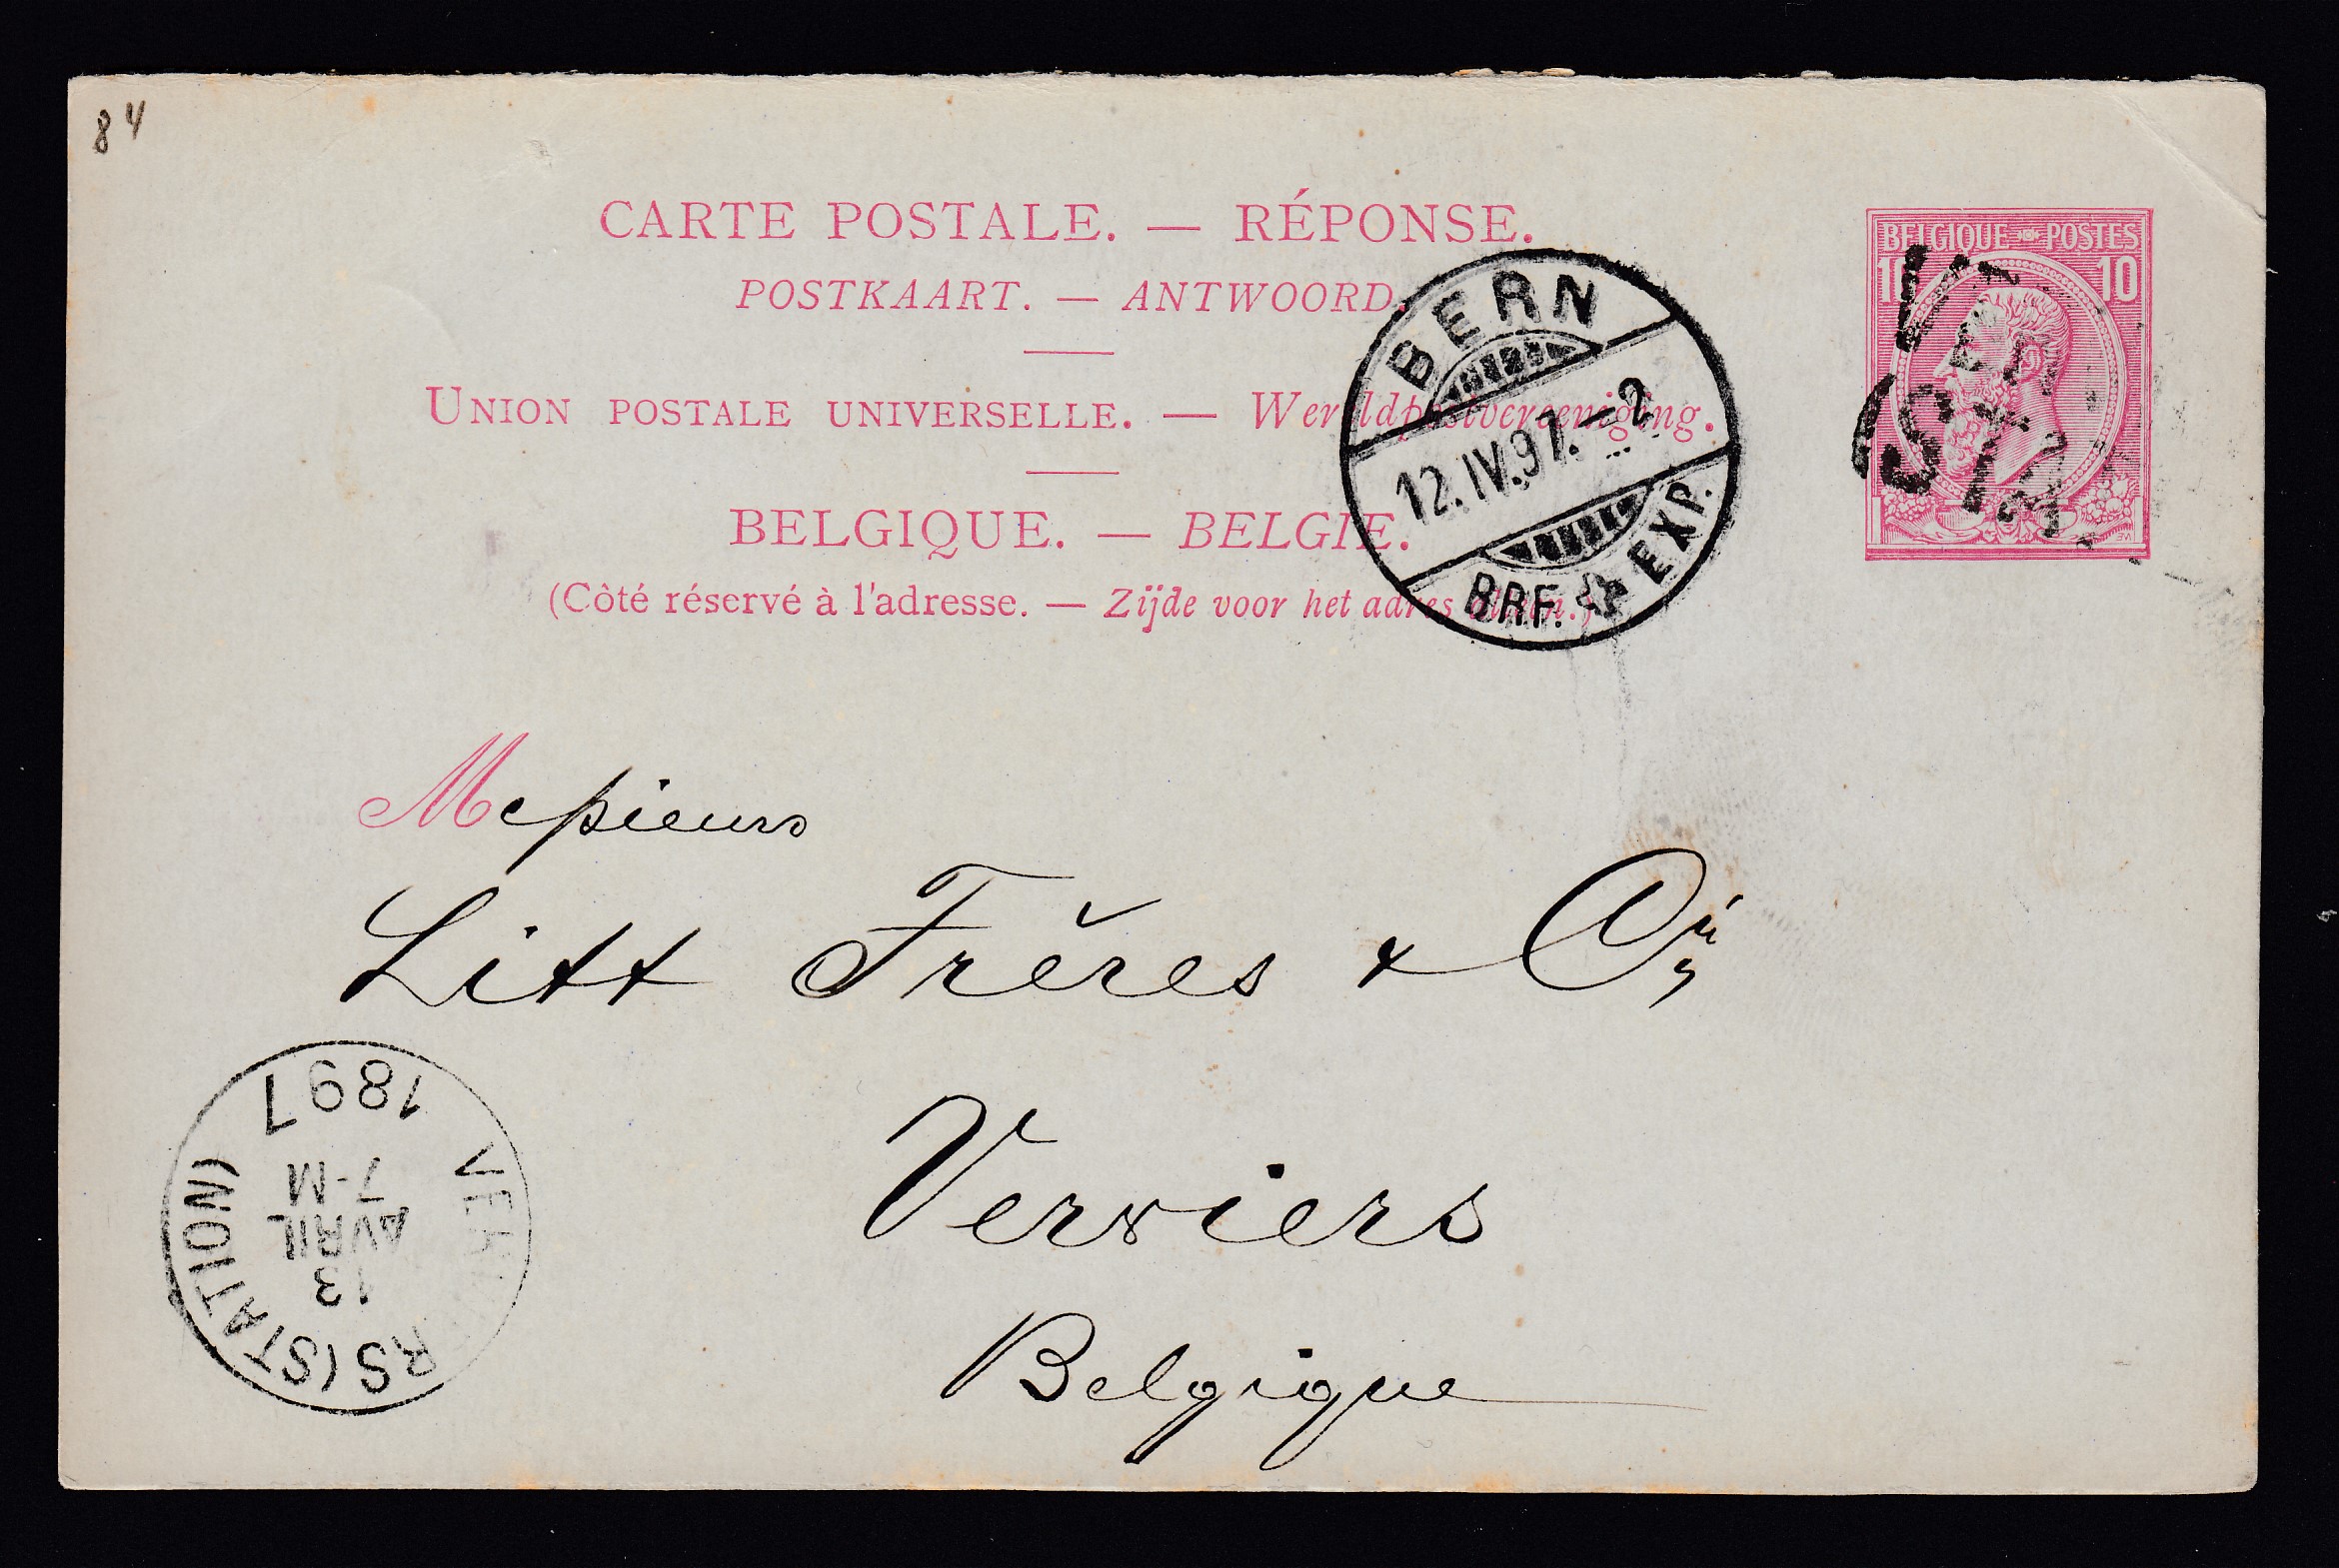 84
CARTE POSTALE. — RÉPONSE.
POSTKAART. — ANTWOORD.
UNION POSTALE UNIVERSELLE. — Wereldpostvereeniging.
BELGIQUE. — BELGIE.
(Côté réservé à l'adresse. — Zijde voor het adres alleen.)
BELGIQUE POSTES
10 10
BERN
12.IV.97.–2
BRF. EXP.
Messieurs
Litt Frères & Cie
Verviers
Belgique
1897
7-M
AVRIL
13
RS (STATION)